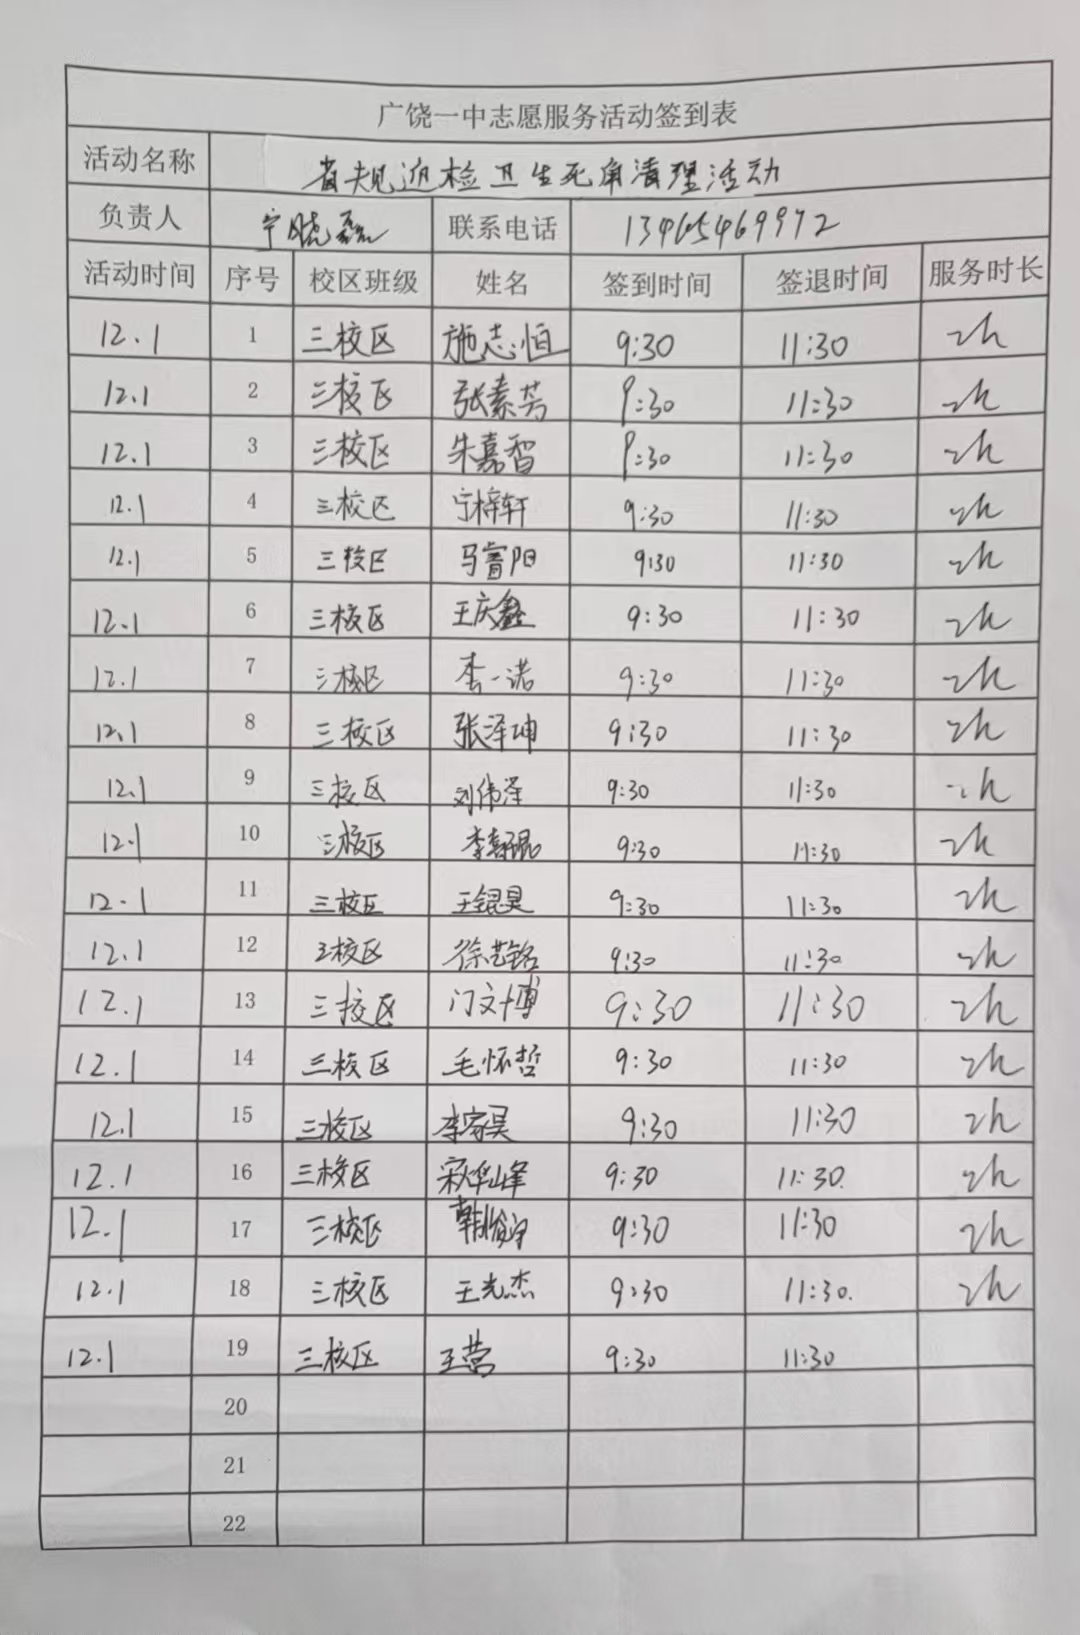 广饶一中志愿服务活动签到表
活动名称 省规迎检卫生死角清理活动
负责人 宁晓磊 联系电话 13465469972
活动时间 序号 校区班级 姓名 签到时间 签退时间 服务时长
12.1 1 三校区 施志恒 9:30 11:30 2h
12.1 2 三校区 张素芳 9:30 11:30 2h
12.1 3 三校区 朱嘉智 9:30 11:30 2h
12.1 4 三校区 宁梓轩 9:30 11:30 2h
12.1 5 三校区 马睿阳 9:30 11:30 2h
12.1 6 三校区 王庆鑫 9:30 11:30 2h
12.1 7 三校区 李一诺 9:30 11:30 2h
12.1 8 三校区 张泽坤 9:30 11:30 2h
12.1 9 三校区 刘伟泽 9:30 11:30 2h
12.1 10 三校区 9:30 11:30 2h
12.1 11 三校区 王锟昊 9:30 11:30 2h
12.1 12 三校区 徐艺铭 9:30 11:30 2h
12.1 13 三校区 门文博 9:30 11:30 2h
12.1 14 三校区 毛怀哲 9:30 11:30 2h
12.1 15 三校区 李家昊 9:30 11:30 2h
12.1 16 三校区 9:30 11:30. 2h
12.1 17 三校区 9:30 11:30 2h
12.1 18 三校区 王光杰 9:30 11:30. 2h
12.1 19 三校区 王营 9:30 11:30
20
21
22